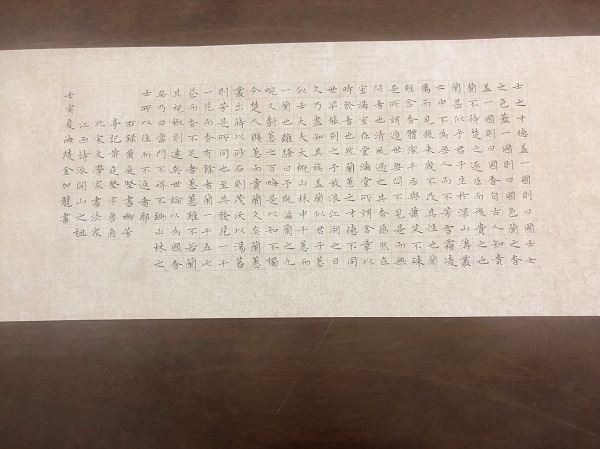 士之才德蓋一國則曰國士女
之色蓋一國則曰國色蘭之香
蓋一國則曰國香自古人知貴
蘭不待楚之逐臣而後貴之也
蘭甚似乎君子生於深山薄叢
之中不為無人而不芳雪霜凌
厲而見殺來歲不改其性也蘭
雖含香體潔平居與蕭艾不殊
是所謂遁世無悶不見是而無
悶者也清風過之其香藹然在
室滿室在堂滿堂所謂含章以
時發者也然蘭蕙之才德不同
世罕能別之予放浪江湖之日
久乃盡知其族蓋蘭似君子蕙
似士大夫大概山林中十蕙而
一蘭也離騷曰予既滋蘭之九
畹又樹蕙之百畮是以知不獨
今楚人賤蕙而貴蘭久矣蘭蕙
叢出蒔以砂石則茂沃以湯茗
則芳是所同也至其發花一干
一花而香有餘者蘭一干五七
花而香不足者蕙蕙雖不若蘭
其視椒則遠矣世論以為國香
矣乃曰當門不得不鋤山林之
士所以往而不返者耶
右錄黃庭堅書幽芳
亭記黃庭堅字魯直
北宋文學家書法家
江西詩派開山之祖
壬寅夏海陵金如龍書